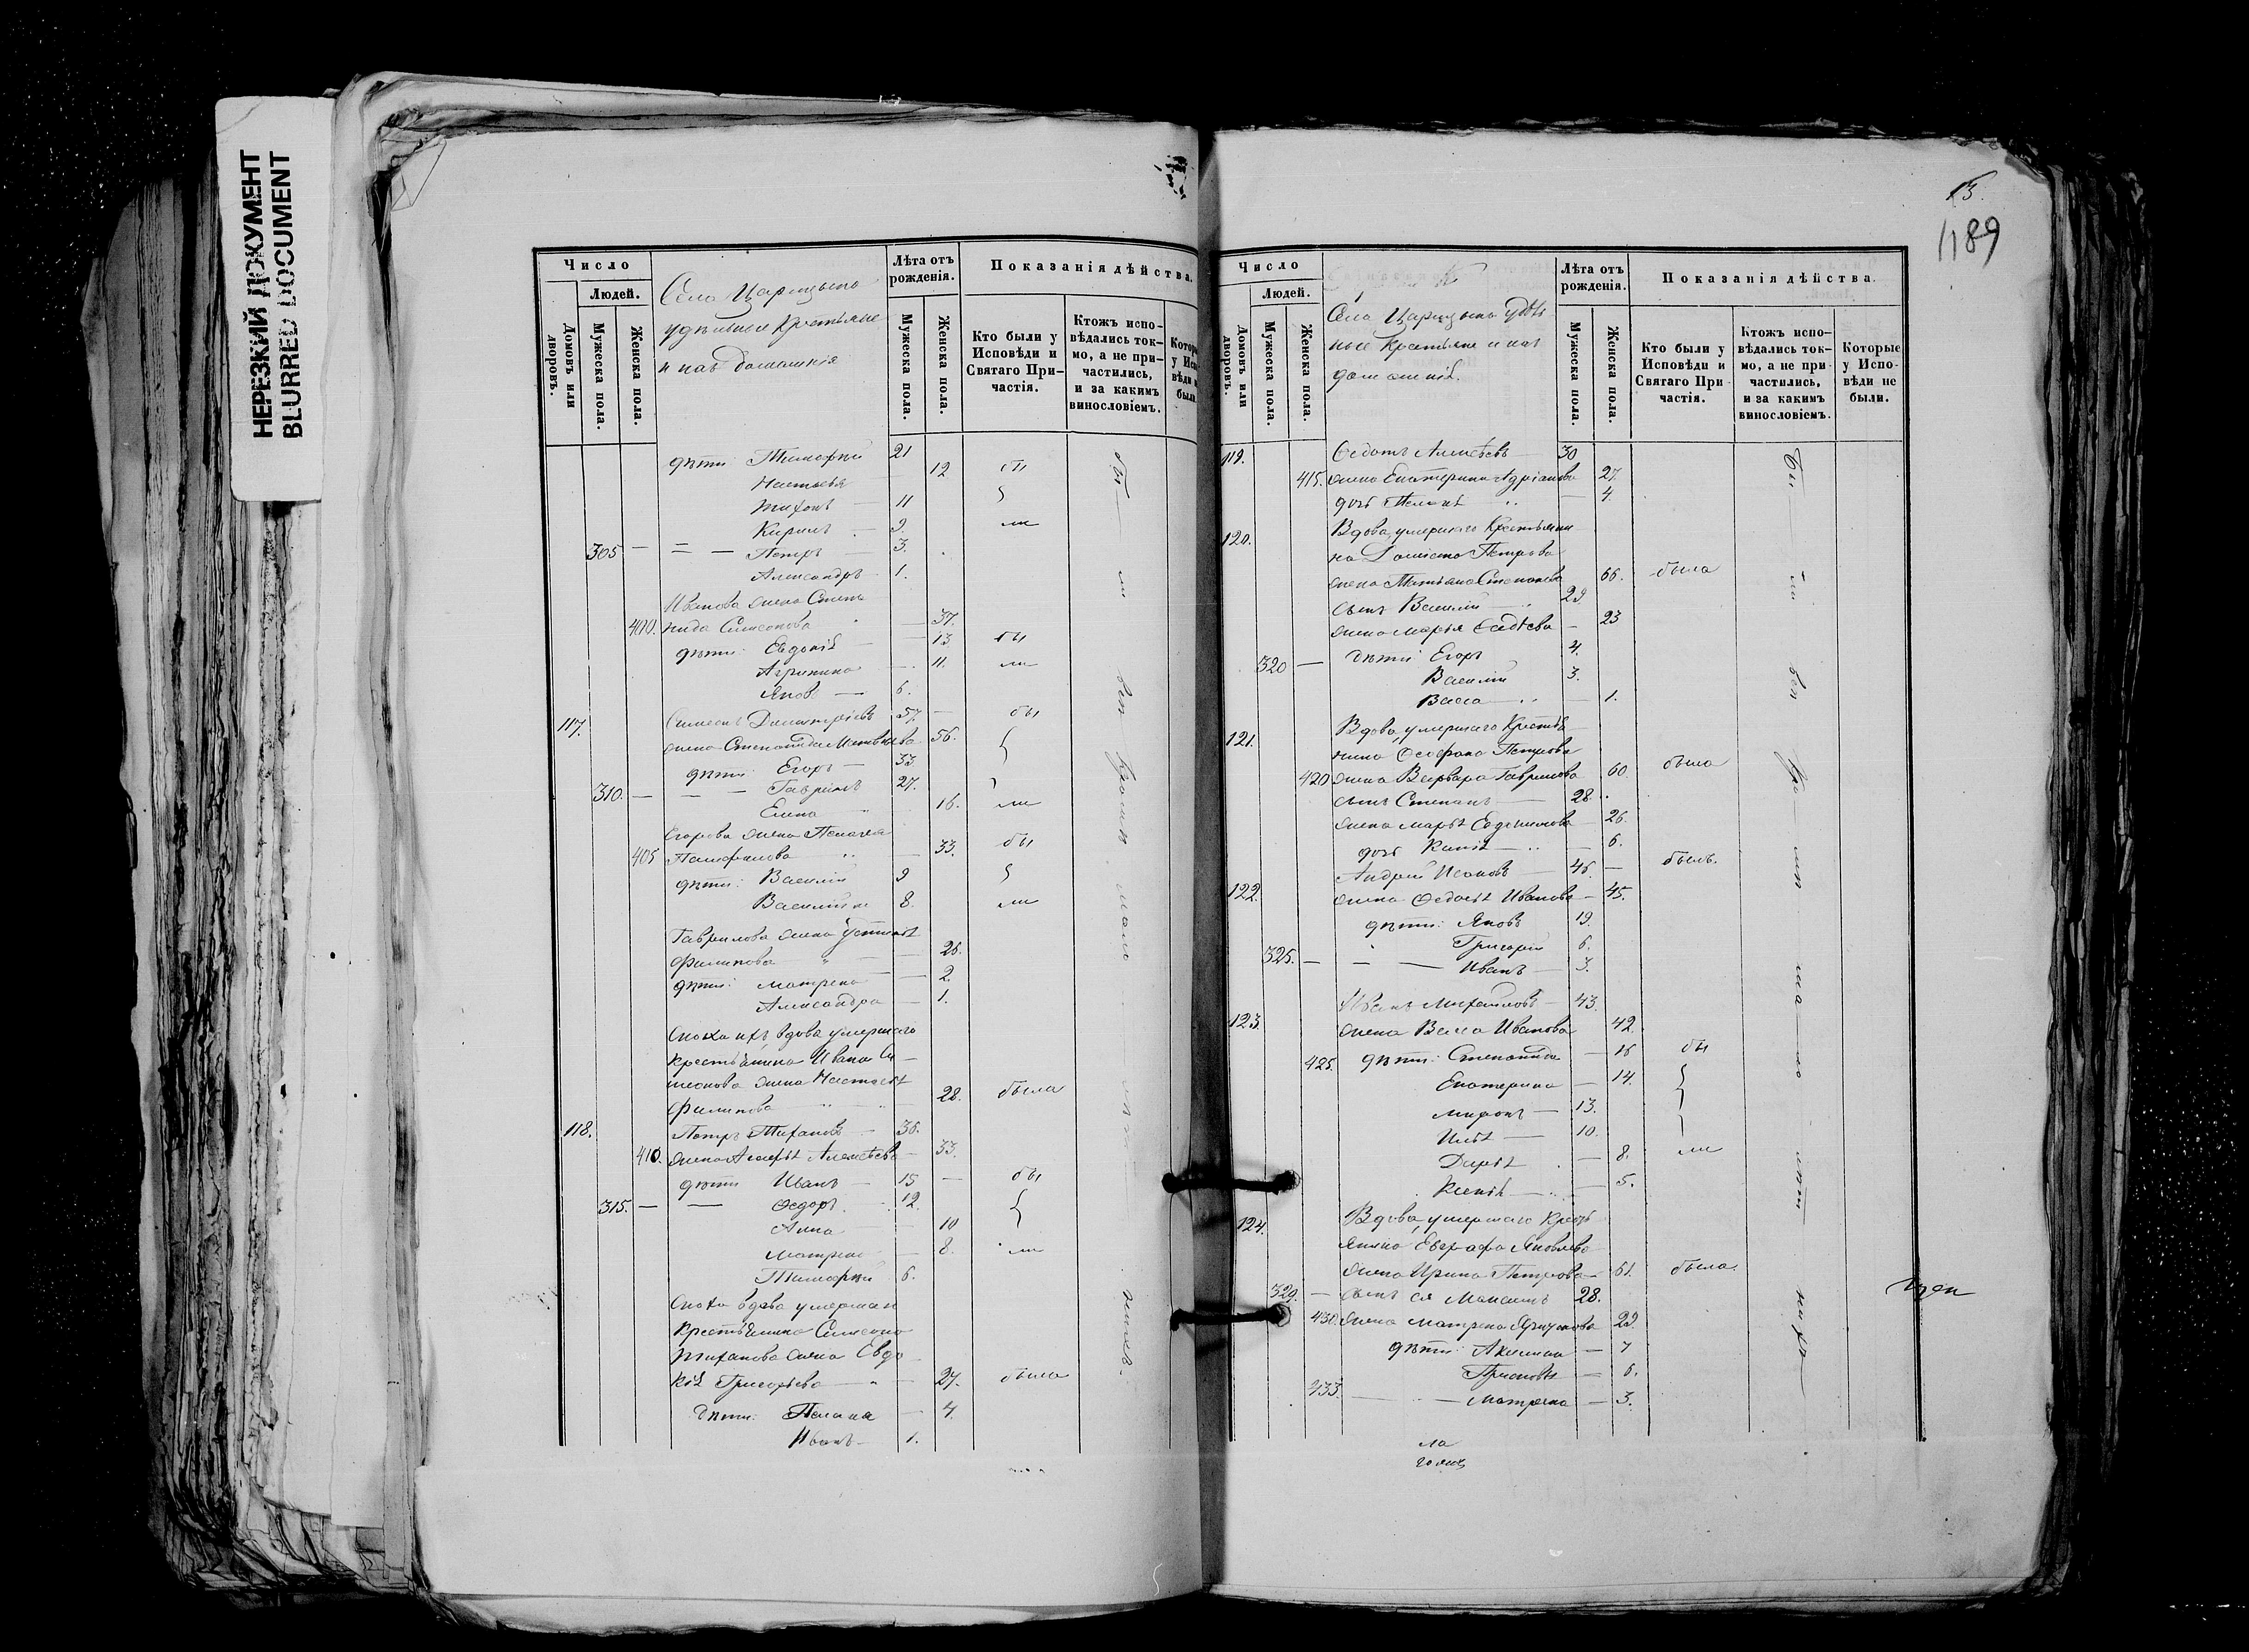 НЕРЕЗКИЙ ДОКУМЕНТ
BLURRED DOCUMENT
Число
Людей.
Домовъ или дворовъ.
Мужеска пола.
Женска пола.
Села Царицына
удѣльные крестьяне
и ихъ домашнія
Лѣта отъ рожденія.
Мужеска пола.
Женска пола.
Показанія дѣйства.
Кто были у Исповѣди и Святаго При-частія.
Ктожъ испо-вѣдались ток-мо, а не при-частились, и за какимъ винословіемъ.
дѣти: Тимофей 21
Настасья 12 бы
Тихонъ 11
Кирилъ 9 ли
305 — Петръ 3.
Александръ 1.
Иванова жена Степа
400. нида Симеонова 37.
дѣти: Евдокія 13 бы
Агрипина 11. ли
Яковъ 6.
117. Симеонъ Димитріевъ 57. бы
жена Степанида Матвѣева 56.
дѣти: Егоръ 33.
310. Гаврилъ 27.
Елена 16. ли
Егорова жена Пелагея
405 Панфилова 33. бы
дѣти: Василій 9
Василій 8. ли
Гаврилова жена Устинія
Филипова 26.
дѣти: Матрена 2.
Александра 1.
Сноха ихъ вдова умершаго
крестьянина Ивана Си-
меонова жена Настасія
Филипова 28. была
118. Петръ Тихановъ 36.
410. жена Марья Алексѣева 33.
дѣти Иванъ 15 бы
315. — Ѳедоръ 12.
Анна 10
Матрена 8. ли
Тимофей 6.
Сноха вдова умершаго
крестьянина Симеона
Тиханова жена Евдо
кія Григорьева 27. была
дѣти: Пелагея 4.
Иванъ 1.
15.
1189
Число
Людей.
Домовъ или дворовъ.
Мужеска пола.
Женска пола.
Села Царицына удѣль
ные крестьяне и ихъ
домашнія.
Лѣта отъ рожденія.
Мужеска пола.
Женска пола.
Показанія дѣйства.
Кто были у Исповѣди и Святаго При-частія.
Ктожъ испо-вѣдались ток-мо, а не при-частились, и за какимъ винословіемъ.
Которые у Испо-вѣди не были.
119. Ѳедотъ Алексѣевъ 30
415. жена Екатерина Адріанова 27.
дочь Пелагія 4.
120. Вдова, умершаго крестьяни
на Петрова
жена Татьяна Степанова 66. была
сынъ Василій 29.
жена Марья 23
320 — дѣти: Егоръ 4.
Василій 3.
Васса 1.
121. Вдова, умершаго крестья
нина Ѳеофана Петрова
420 жена Варвара Гаврилова 60. была
сынъ Степанъ 28.
жена Марья Евдокимова 26.
дочь Ксенія 6.
122. Андрей Исаковъ 46. былъ.
жена Ѳедосья Иванова 45.
дѣти: Яковъ 19.
Григорій 6.
325. — Иванъ 3.
123. Иванъ Михайловъ 43.
жена Васса Иванова 42.
425. дѣти: Степанида 16 бы
Екатерина 14.
Миронъ 13.
Илья 10.
Дарья 8. ли
Ксенія 5.
124. Вдова, умершаго кресть
янина Евграфа Яковлева
жена Ирина Петрова 61. была.
329. — сынъ ея Максимъ 28.
430. жена Матрена 29.
дѣти: 7
6.
433. Матрена 3.